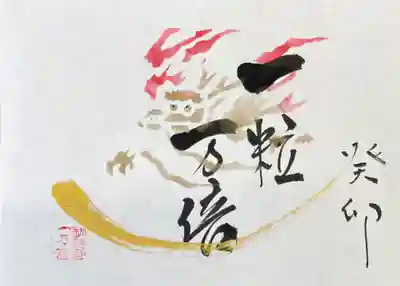 癸卯
一粒
万倍